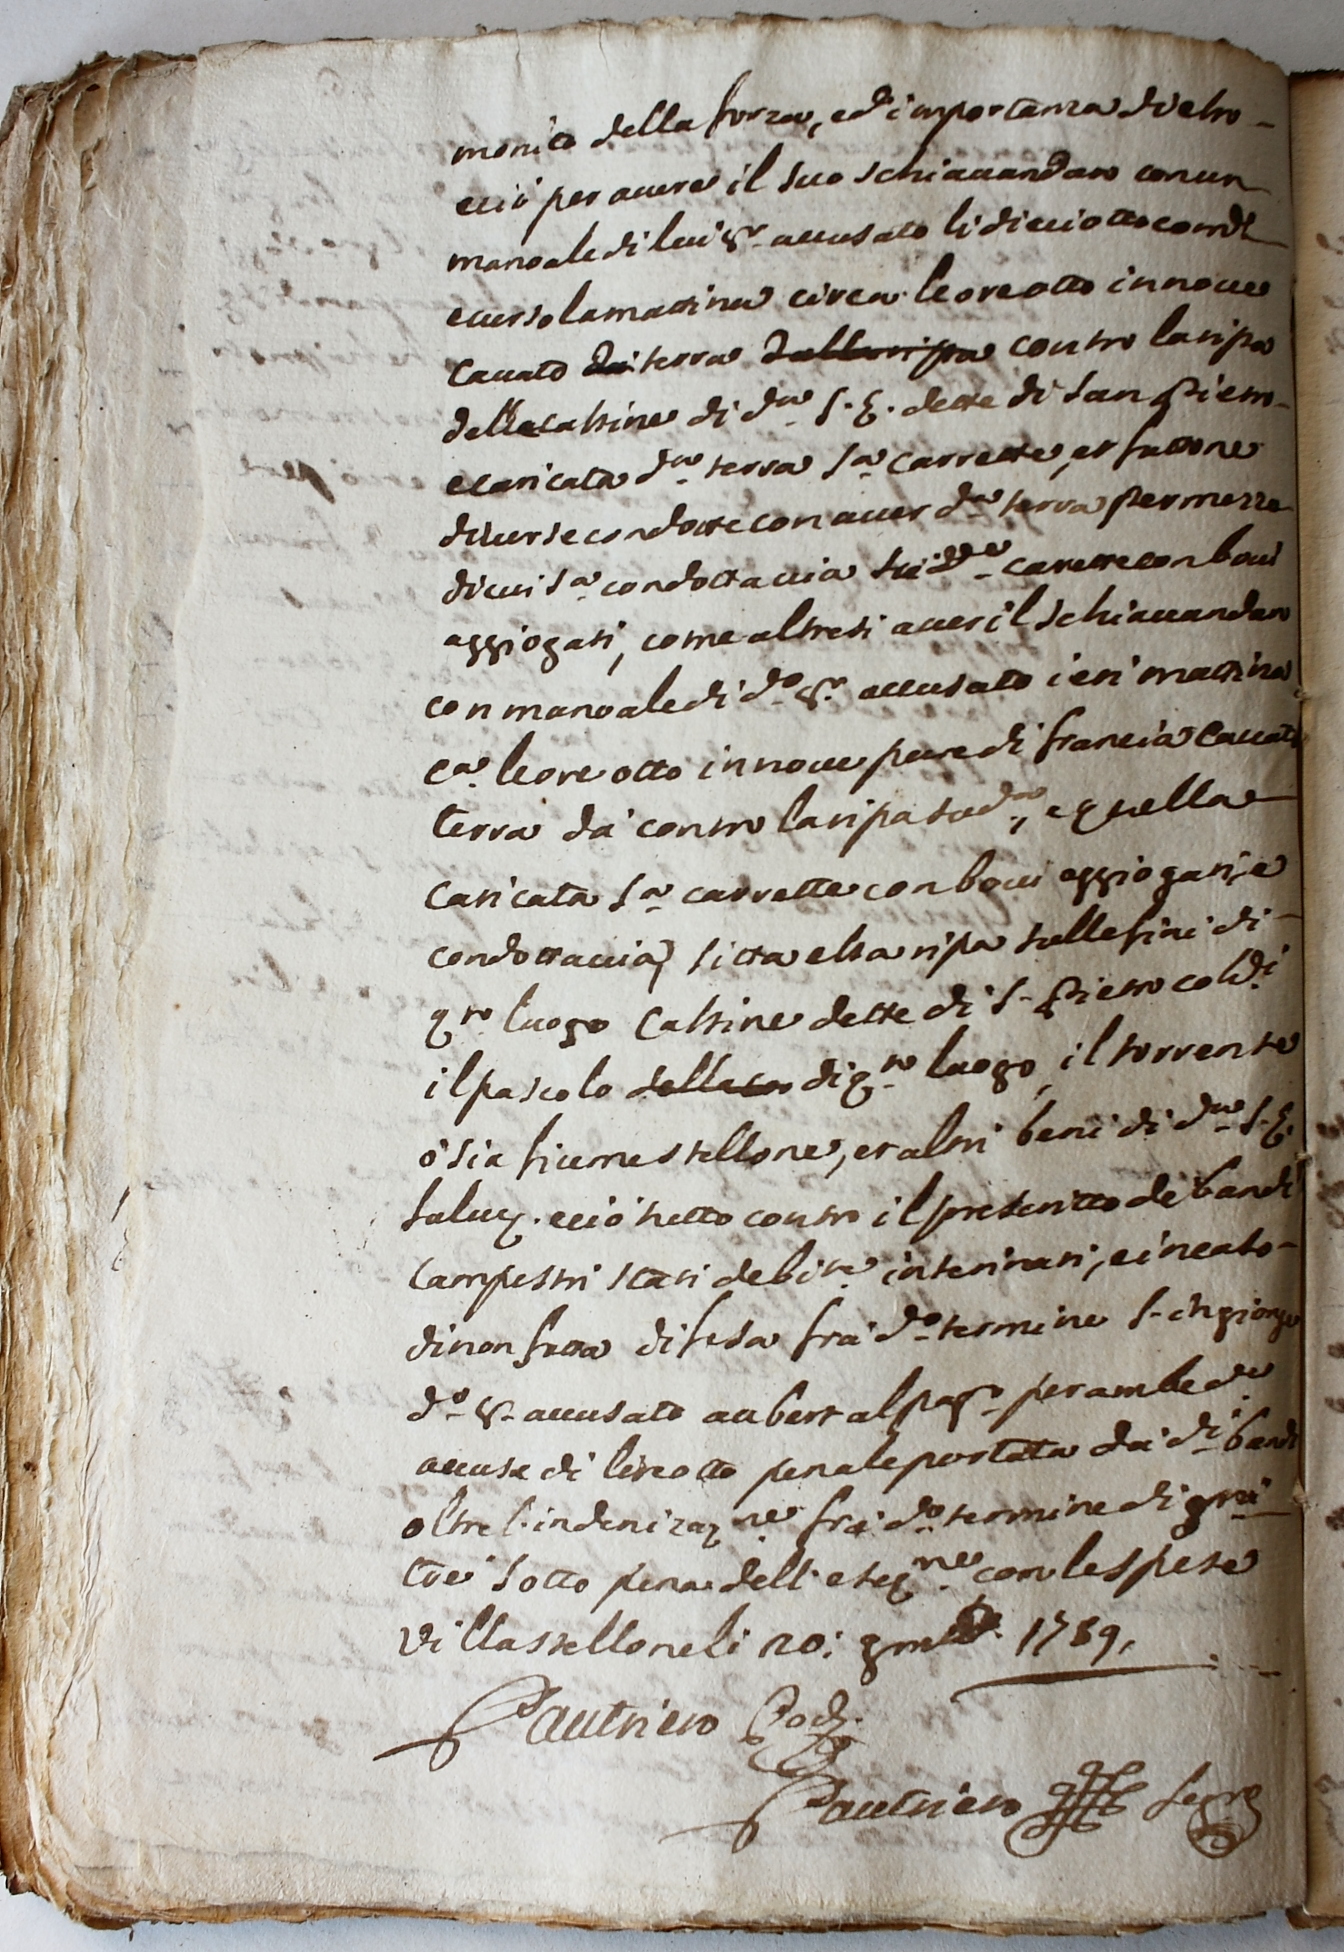 monito della forza, ed importanza di elso-
e ciò per avere il suo schiavandaro con un
manoale di lui Sr. accusato li dieciotto corrte
e verso la mattina circa le ore otto in nove
cavato da terra dalla ripa contro la ripa
delle Cassine di da. S. E. dette di San Pietro-
e caricata da. terra sa. carrette, et fattone
diverse condotte con aver da. terra per mezzo
di cui sa. condotta via sui dde. carrette con bovi
aggiogati, come altresi aver il schiavandaro
con manoale di do. Sr. accusato ieri mattina
ca. le ore otto in nove pure di francia cavato
terra da contro la ripa suda., e quella
caricata sa. carrette con bovi aggiogati, e
condotta via, sitta elsa ripa sulle fini di-
qto luogo Cassine dette di S. Pietro coldi
il pascolo dello di qto luogo, il torrente
ò sia fiume stellone, et altri beni di da. S. E.
Saluz. e ciò tutto contro il prescritto de bandi
Campestri stati debite. interinati, e in caso-
di non fatta difesa frà do. termine s'ingionge
do. Sr. accusato aubert al pagto. per ambe de.
accuse di lire otto penale portata dai di. bandi
oltre l'indenizazne. frà do. termine di gni
tre sotto pena dell'esegne. con le spese
Villastellone li 20: gmbre. 1789.
Pautriero Pod.
Pautriero Segro